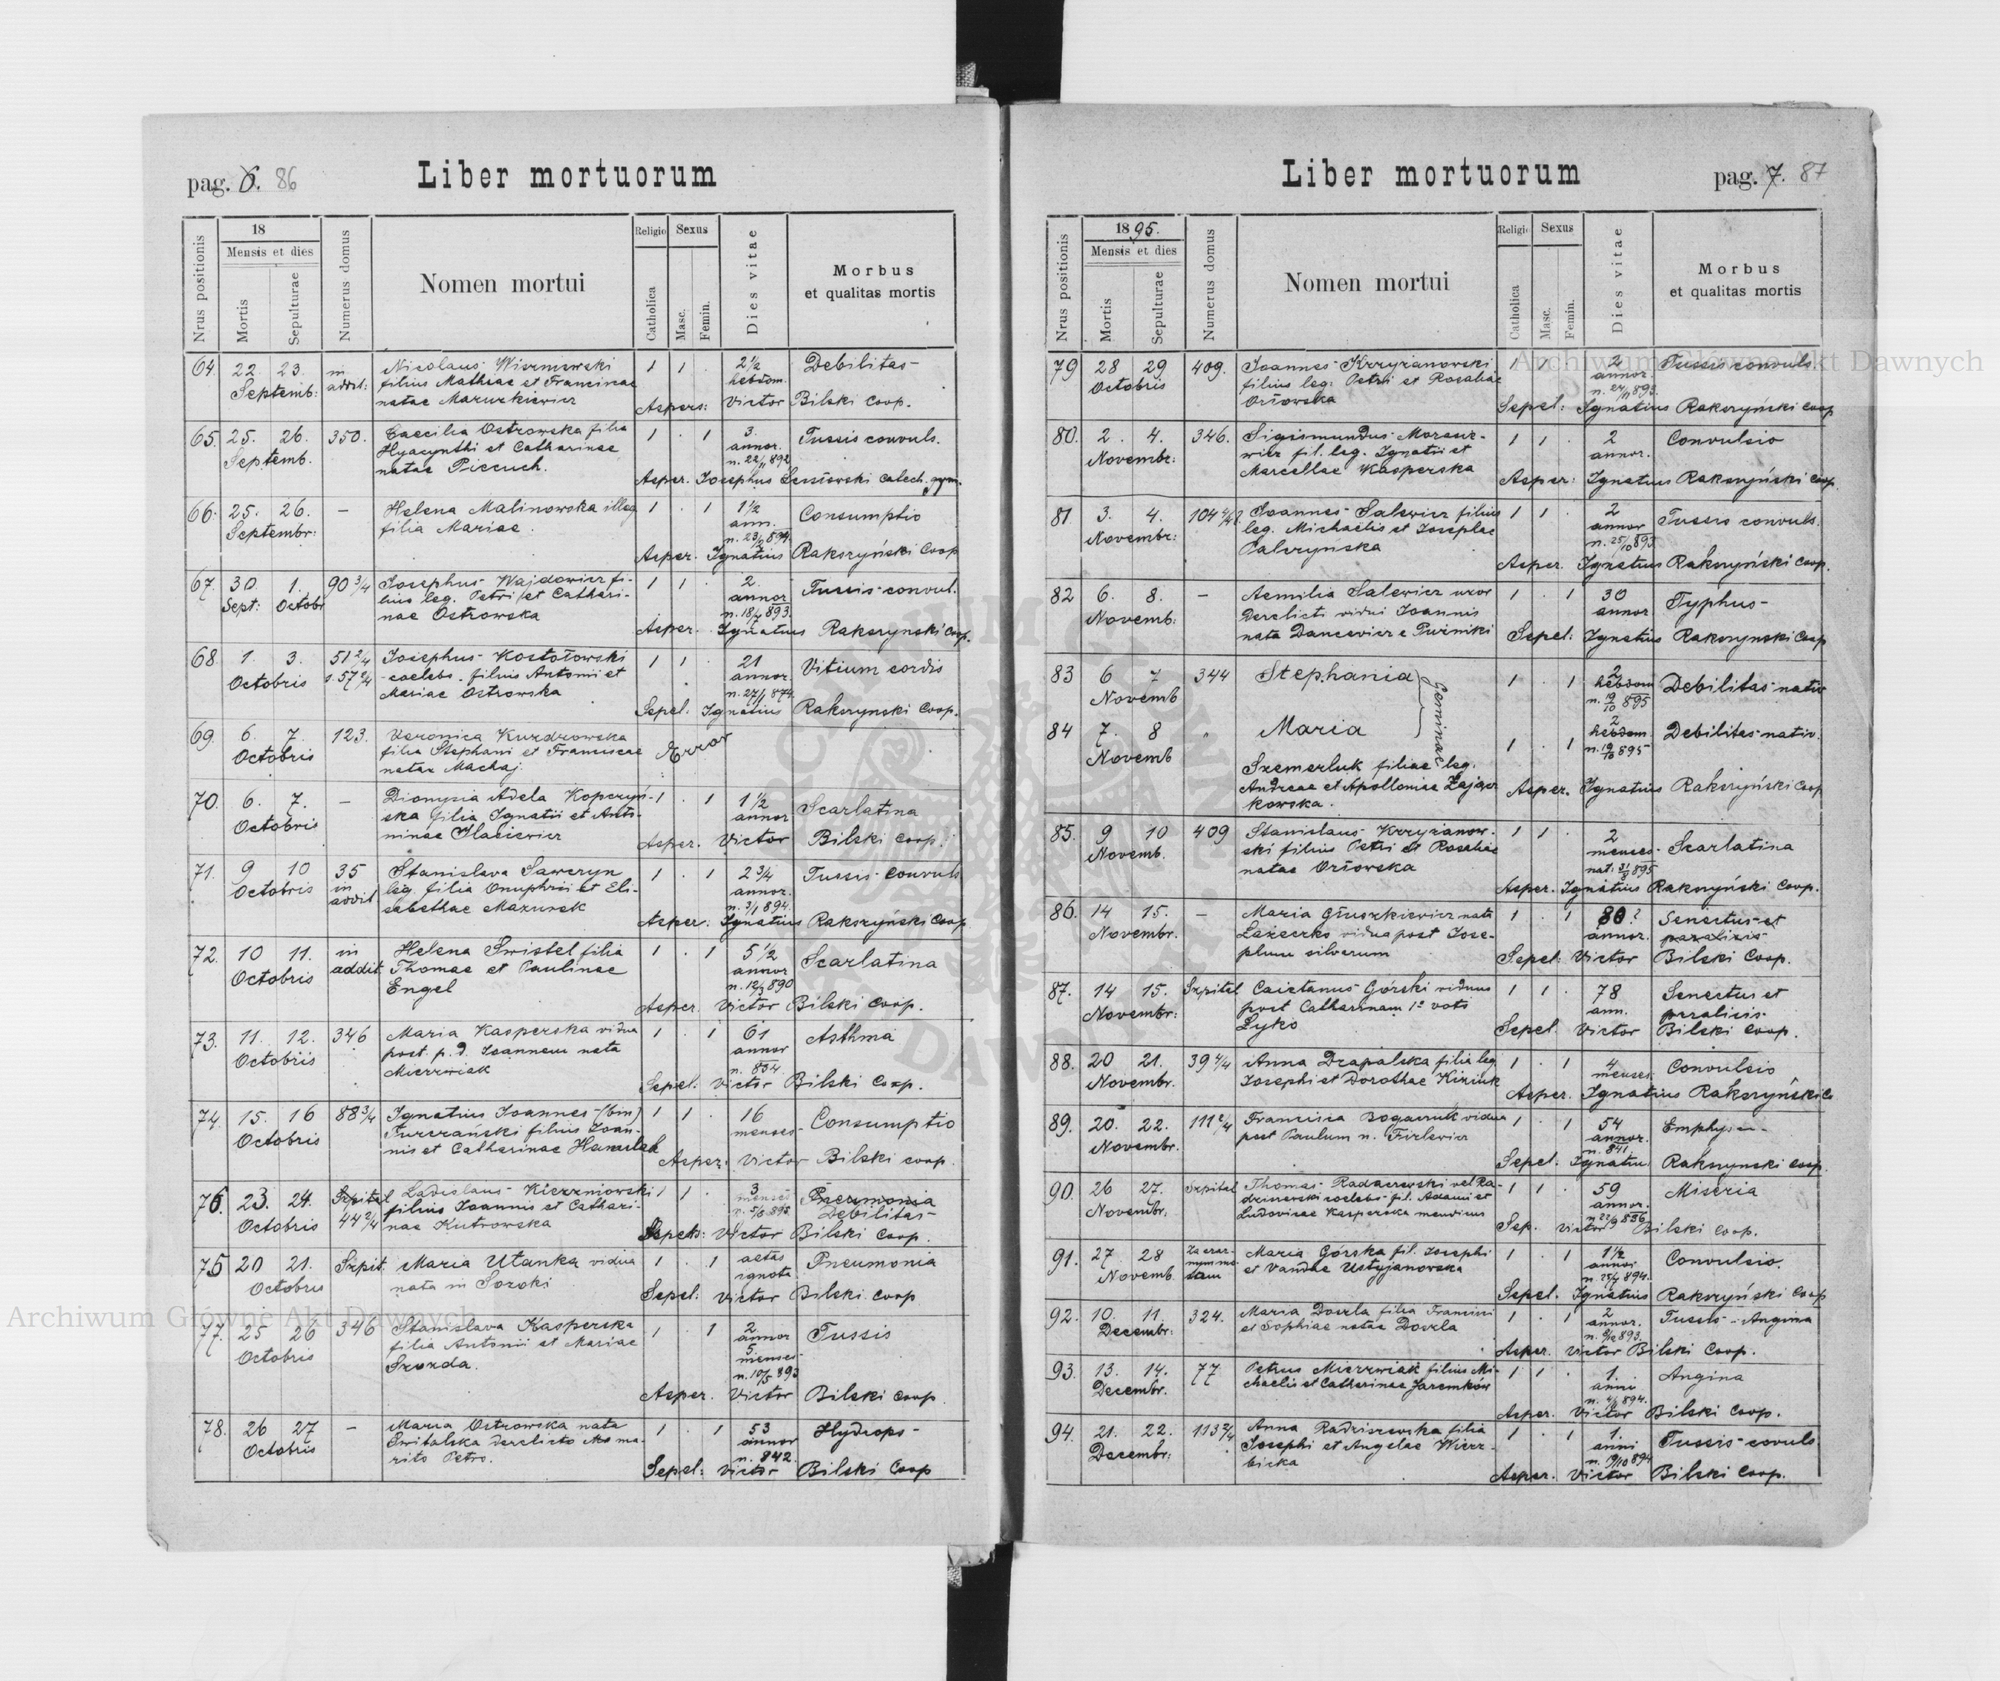 pag. 6. 86
Liber mortuorum
Nrus positionis
18
Mensis et dies
Mortis
Sepulturae
Numerus domus
Nomen mortui
Religio
Catholica
Sexus
Masc.
Femin.
Dies vitae
Morbus
et qualitas mortis
64 22. 23. in Nicolaus Wiszniewski 1 1 . 2½ Debilitas
Septemb: addit: filius Mathiae et Franciscae hebdom.
natae Mazurkiewicz Aspers: Victor Bilski Coop.
65. 25. 26. 350. Caecilia Ostrowska filia 1 . 1 3. Tussis convuls.
Septemb. Hyacynthi et Catharinae annor.
natae Pieciuch. n. 22/11 892
Asper. Josephus catech. gym.
66. 25. 26. — Helena Malinowska illeg. 1 . 1 1½ Consumptio
Septembr: filia Mariae. ann.
Asper. Ignatius Rakszyński Coop
67. 30 1. 90 3/4 Josephus Wajdowicz fi- 1 1 . 2. Tussis convul.
Sept: Octobr lius leg. Petri et Cathari- annor
nae Ostrowska n. 18/ 893.
Asper. Ignatius Rakszynski Coop.
68. 1. 3. 51 2/4 Josephus Kostołowski 1 1 . 21 Vitium cordis
Octobris 57 2/4 coelebs. filius Antonii et annor
Mariae Ostrowska n. 27/1 874.
Sepel. Ignatius Rakszynski Coop.
69. 6. 7. 123. Veronica Kurdrowska Error
Octobris filia Stephani et Franciscae
natae Machaj
70. 6. 7. — Dionysia Adela Kopczyń- 1 . 1 1½ Scarlatina
Octobris ska filia Ignatii et Anto- annor
ninae Ilasiewicz Asper. Victor Bilski Coop.
71. 9 10 35 Stanislava Saweryn 1 . 1 2¾ Tussis convuls
Octobris in addit leg. filia Onuphrii et Eli- annor.
sabethae Mazurek n. 3/1 894.
Asper. Ignatius Rakszyński Coop
72. 10 11. in Helena Świstel filia 1 . 1 5½ Scarlatina
Octobris addit Thomae et Paulinae annor
Engel n. 12/3 890
Asper. Victor Bilski Coop.
73. 11. 12. 346 Maria Kasperska vidua 1 . 1 61 Asthma
Octobris post p. d. Joannem nata annor
Mierzwiak n. 834.
Sepel. Victor Bilski Coop.
74. 15. 16 88 3/4 Ignatius Joannes (bin) 1 1 . 16 Consumptio
Octobris filius Joan- menses
nis et Catharinae Hawrilak
Asper: Victor Bilski coop.
76. 23. 24. Szpital Ladislaus Kierzniowski 1 1 . 3 Pneumonia
Octobris 44 2/4 filius Joannis et Cathari- menses Debilitas
nae Kutrowska n. 5/8 895
Sepel: Victor Bilski Coop.
75 20 21. Szpit. Maria Utanka vidua 1 . 1 aetas Pneumonia
Octobris nata in Soroki ignota
Sepel: Victor Bilski coop
77. 25 26 346 Stanislava Kasperska 1 . 1 2 Tussis
Octobris filia Antonii et Mariae annor
Szozda. 5 menses
n. 10/5 893
Asper. Victor Bilski Coop.
78. 26 27 — Maria Ostrowska nata 1 . 1 53 Hydrops
Octobris Switalska derelicto ma- annor
rito Petro. n. 842.
Sepel: Victor Bilski Coop
Liber mortuorum
pag. 7. 87
Nrus positionis
1895.
Mensis et dies
Mortis
Sepulturae
Numerus domus
Nomen mortui
Religio
Catholica
Sexus
Masc.
Femin.
Dies vitae
Morbus
et qualitas mortis
79 28 29 409. Joannes Krzyżanowski 1 1 . 2 Tussis convuls.
Octobris filius leg. Petri et Rosaliae annor
Orłowska n. 24/11 893.
Sepel: Ignatius Rakszyński Coop
80. 2. 4. 346. Sigismundus Morsur- 1 1 . 2 Convulsio
Novembr: wicz fil. leg. Ignatii et annor.
Marcellae Kasperska Asper: Ignatius Rakszyński Coop.
81 3. 4. Joannes Salewicz filius 1 1 . 2 Tussis convuls.
Novembr: leg. Michaelis et Josephae annor
Palczyńska n. 25/10 893
Asper. Ignatius Rakszyński Coop.
82 6. 8. — Aemilia Salewicz uxor 1 . 1 30 Typhus
Novemb: derelicti vidui Joannis annor
nata Dancewicz e Purniki Sepel: Ignatius Rakszynski Coop
83 6 7 344 Stephania 1 . 1 2 Debilitas nativ
Novemb hebdom
n. 19/10 895
Geminae
84 7. 8 " Maria 1 . 1 2 Debilitas nativ.
Novemb hebdom
n. 19/10 895
Szemerluk filiae leg.
Andreae et Apolloniae Zającz-
kowska. Asper. Ignatius Rakszyński Coop
85. 9 10 409 Stanislaus Krzyżanow- 1 1 . 2 Scarlatina
Novemb. ski filius Petri et Rosaliae menses
natae Orłowska
Asper. Ignatius Rakszyński Coop.
86. 14 15. — Maria Głuszkiewicz nata 1 . 1 80? Senectus et
Novembr. Łażeczko vidua post Jose- annor. paralisis
phum silverum Sepel: Victor Bilski Coop.
87. 14 15. Szpital Caietanus Górski viduus 1 1 . 78 Senectus et
Novembr: post Catharinam 1º voti ann. paralisis
Łyko Sepel. Victor Bilski Coop.
88. 20 21. 39 4/4 Anna Drapalska filia leg. 1 . 1 4 Convulsio
Novembr. Josephi et Dorothae Kiziuk menses
Asper. Ignatius Rakszyński C.
89. 20. 22. 111 2/4 Francisca Bogaczuk vidua 1 . 1 54 Emphysem
Novembr. post Paulum n. Firlewicz annor.
n. 841
Sepel. Ignatius Rakszynski coop.
90. 26 27. Szpital Thomas Radaszewski vel Ra- 1 1 . 59 Miseria
Novembr. dzinowski coelebs fil. Adami et annor.
Ludovicae Kasperska mendicus n. 22/9 836
Sep. Victor Bilski Coop.
91. 27 28 Maria Górska fil. Josephi 1 . 1 1½ Convulsio
Novemb. et Vandae Ustyjanowska annor
n. 25/ 894.
Sepel. Ignatius Rakszyński Coop
92. 10. 11. 324. Maria Dorla filia Francisci 1 . 1 2 Tussis - Angina
Decembr: et Sophiae natae Dorla annor.
Asper. Victor Bilski Coop.
93. 13. 14. 77 Petrus Mierzwiak filius Mi- 1 1 . 1. Angina
Decembr. chaelis et Catharinae Jaremków anni
Asper. Victor Bilski Coop.
94. 21. 22. 113 2/4 Anna Radziszewska filia 1 . 1 1. Tussis covuls
Decembr: Josephi et Angelae Wierz- anni
bicka n. 9/10 894
Asper. Victor Bilski Coop.
Archiwum Główne Akt Dawnych
Archiwum Główne Akt Dawnych